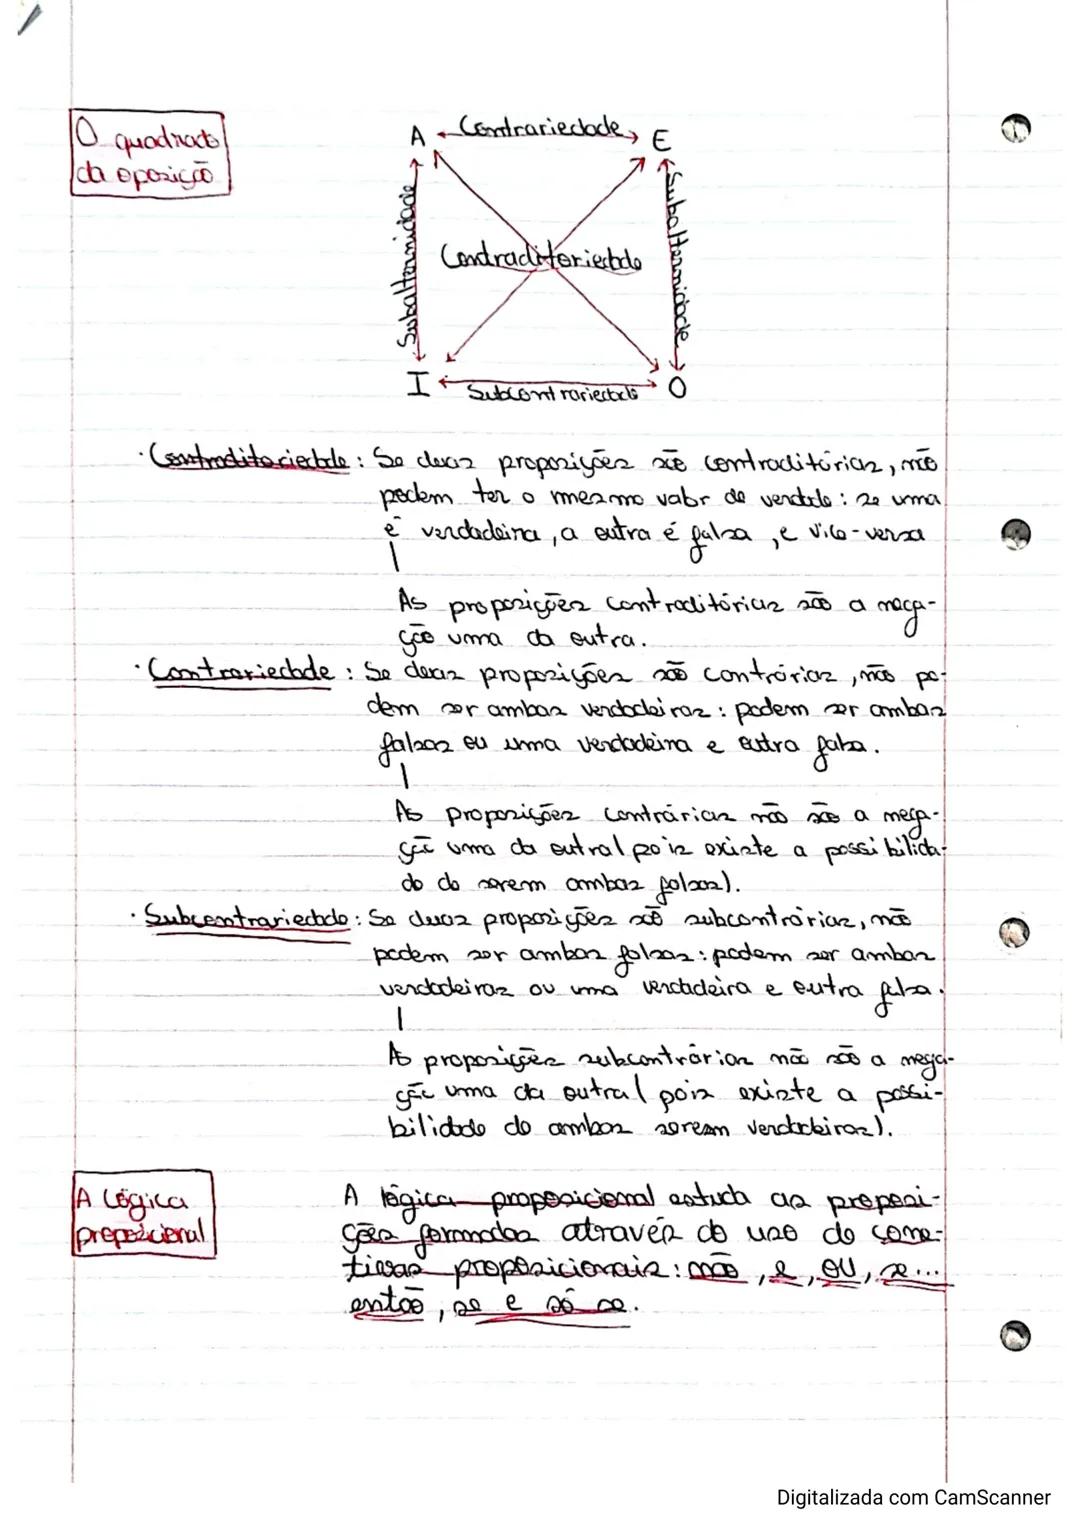 O quadrado
da oposição
A Contrariedade E
Subalternidade
Contraditoriedade
Subalternidade
I Subcontrariedade O
· Contraditoriedade : Se duas proposições são contraditórias, não
podem ter o mesmo valor de verdade : se uma
é verdadeira, a outra é falsa, e vice-versa
As proposições contraditórias são a nega-
ção uma da outra.
· Contrariedade : Se duas proposições são contrárias, não po-
dem ser ambas verdadeiras : podem ser ambas
falsas ou uma verdadeira e outra falsa.
As proposições contrárias não são a nega-
ção uma da outra (pois existe a possibilida-
de de serem ambas falsas).
· Subcontrariedade : Se duas proposições são subcontrárias, não
podem ser ambas falsas : podem ser ambas
verdadeiras ou uma verdadeira e outra falsa.
As proposições subcontrárias não são a nega-
ção uma da outra (pois existe a possi-
bilidade de ambas serem verdadeiras).
A Lógica
proposicional
A lógica proposicional estuda as proposi-
ções formadas através do uso de cone-
tivas proposicionais : não, e, ou, se...
então, se e só se.
Digitalizada com CamScanner